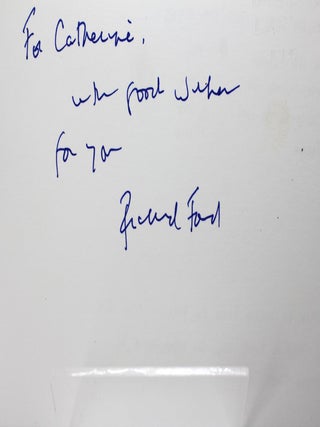 For Catherine,
with good wishes
for you
Richard Ford